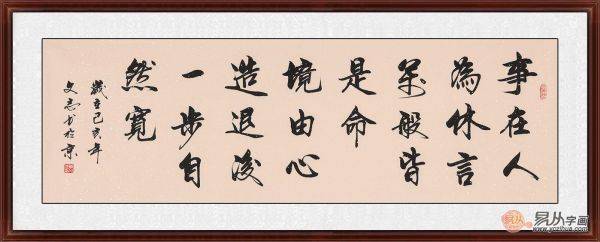 事在人
為休言
萬般皆
是命
境由心
造退後
一步自
然寬
歲在己亥年
文志书於京
易从字画
www.yczihua.com